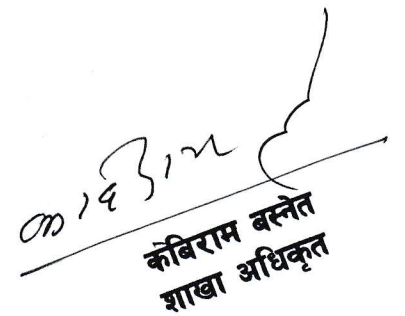 केबिराम बस्नेत
शाखा अधिकृत